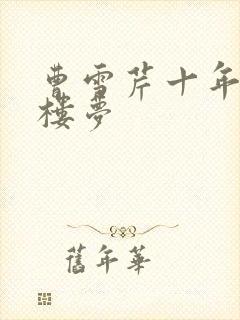 曹雪芹十年
樓夢
舊年華